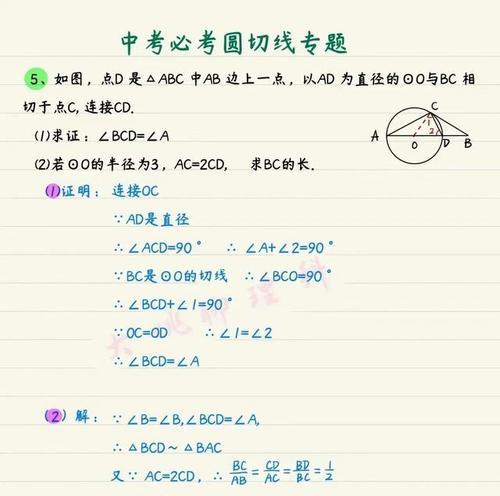 中考必考圆切线专题
5、如图，点D 是△ABC 中AB 边上一点，以AD 为直径的⊙O与BC 相
切于点C,连接CD.
(1)求证：∠BCD=∠A
(2)若⊙O的半径为3，AC=2CD， 求BC的长.
A O D B C 1 2
(1)证明：连接OC
∵AD是直径
∴∠ACD=90° ∴∠A+∠2=90°
∵BC是⊙O的切线 ∴∠BCO=90°
∴∠BCD+∠1=90°
∵OC=OD ∴∠1=∠2
∴∠BCD=∠A
(2) 解：∵∠B=∠B,∠BCD=∠A,
∴△BCD~△BAC
又∵AC=2CD，∴BC/AB=CD/AC=BD/BC=1/2